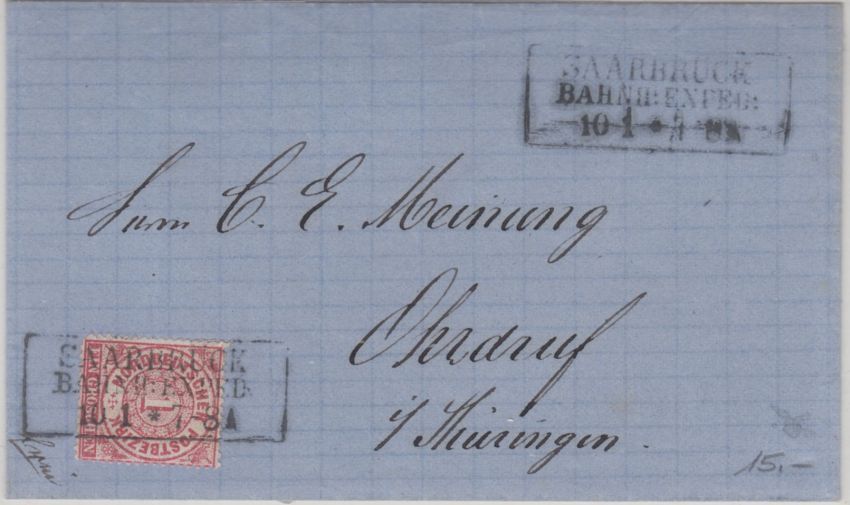 SAARBRÜCK
BAHNH: EXPED:
10 1 * 7 8A
Herrn C. E. Meinung
Ohrdruf
i/Thüringen.
SAARBRÜCK
BAHNH: EXPED:
10 1 * 7 8A
NORDDEUTSCHER POSTBEZIRK
1
EIN GROSCHEN
15.–